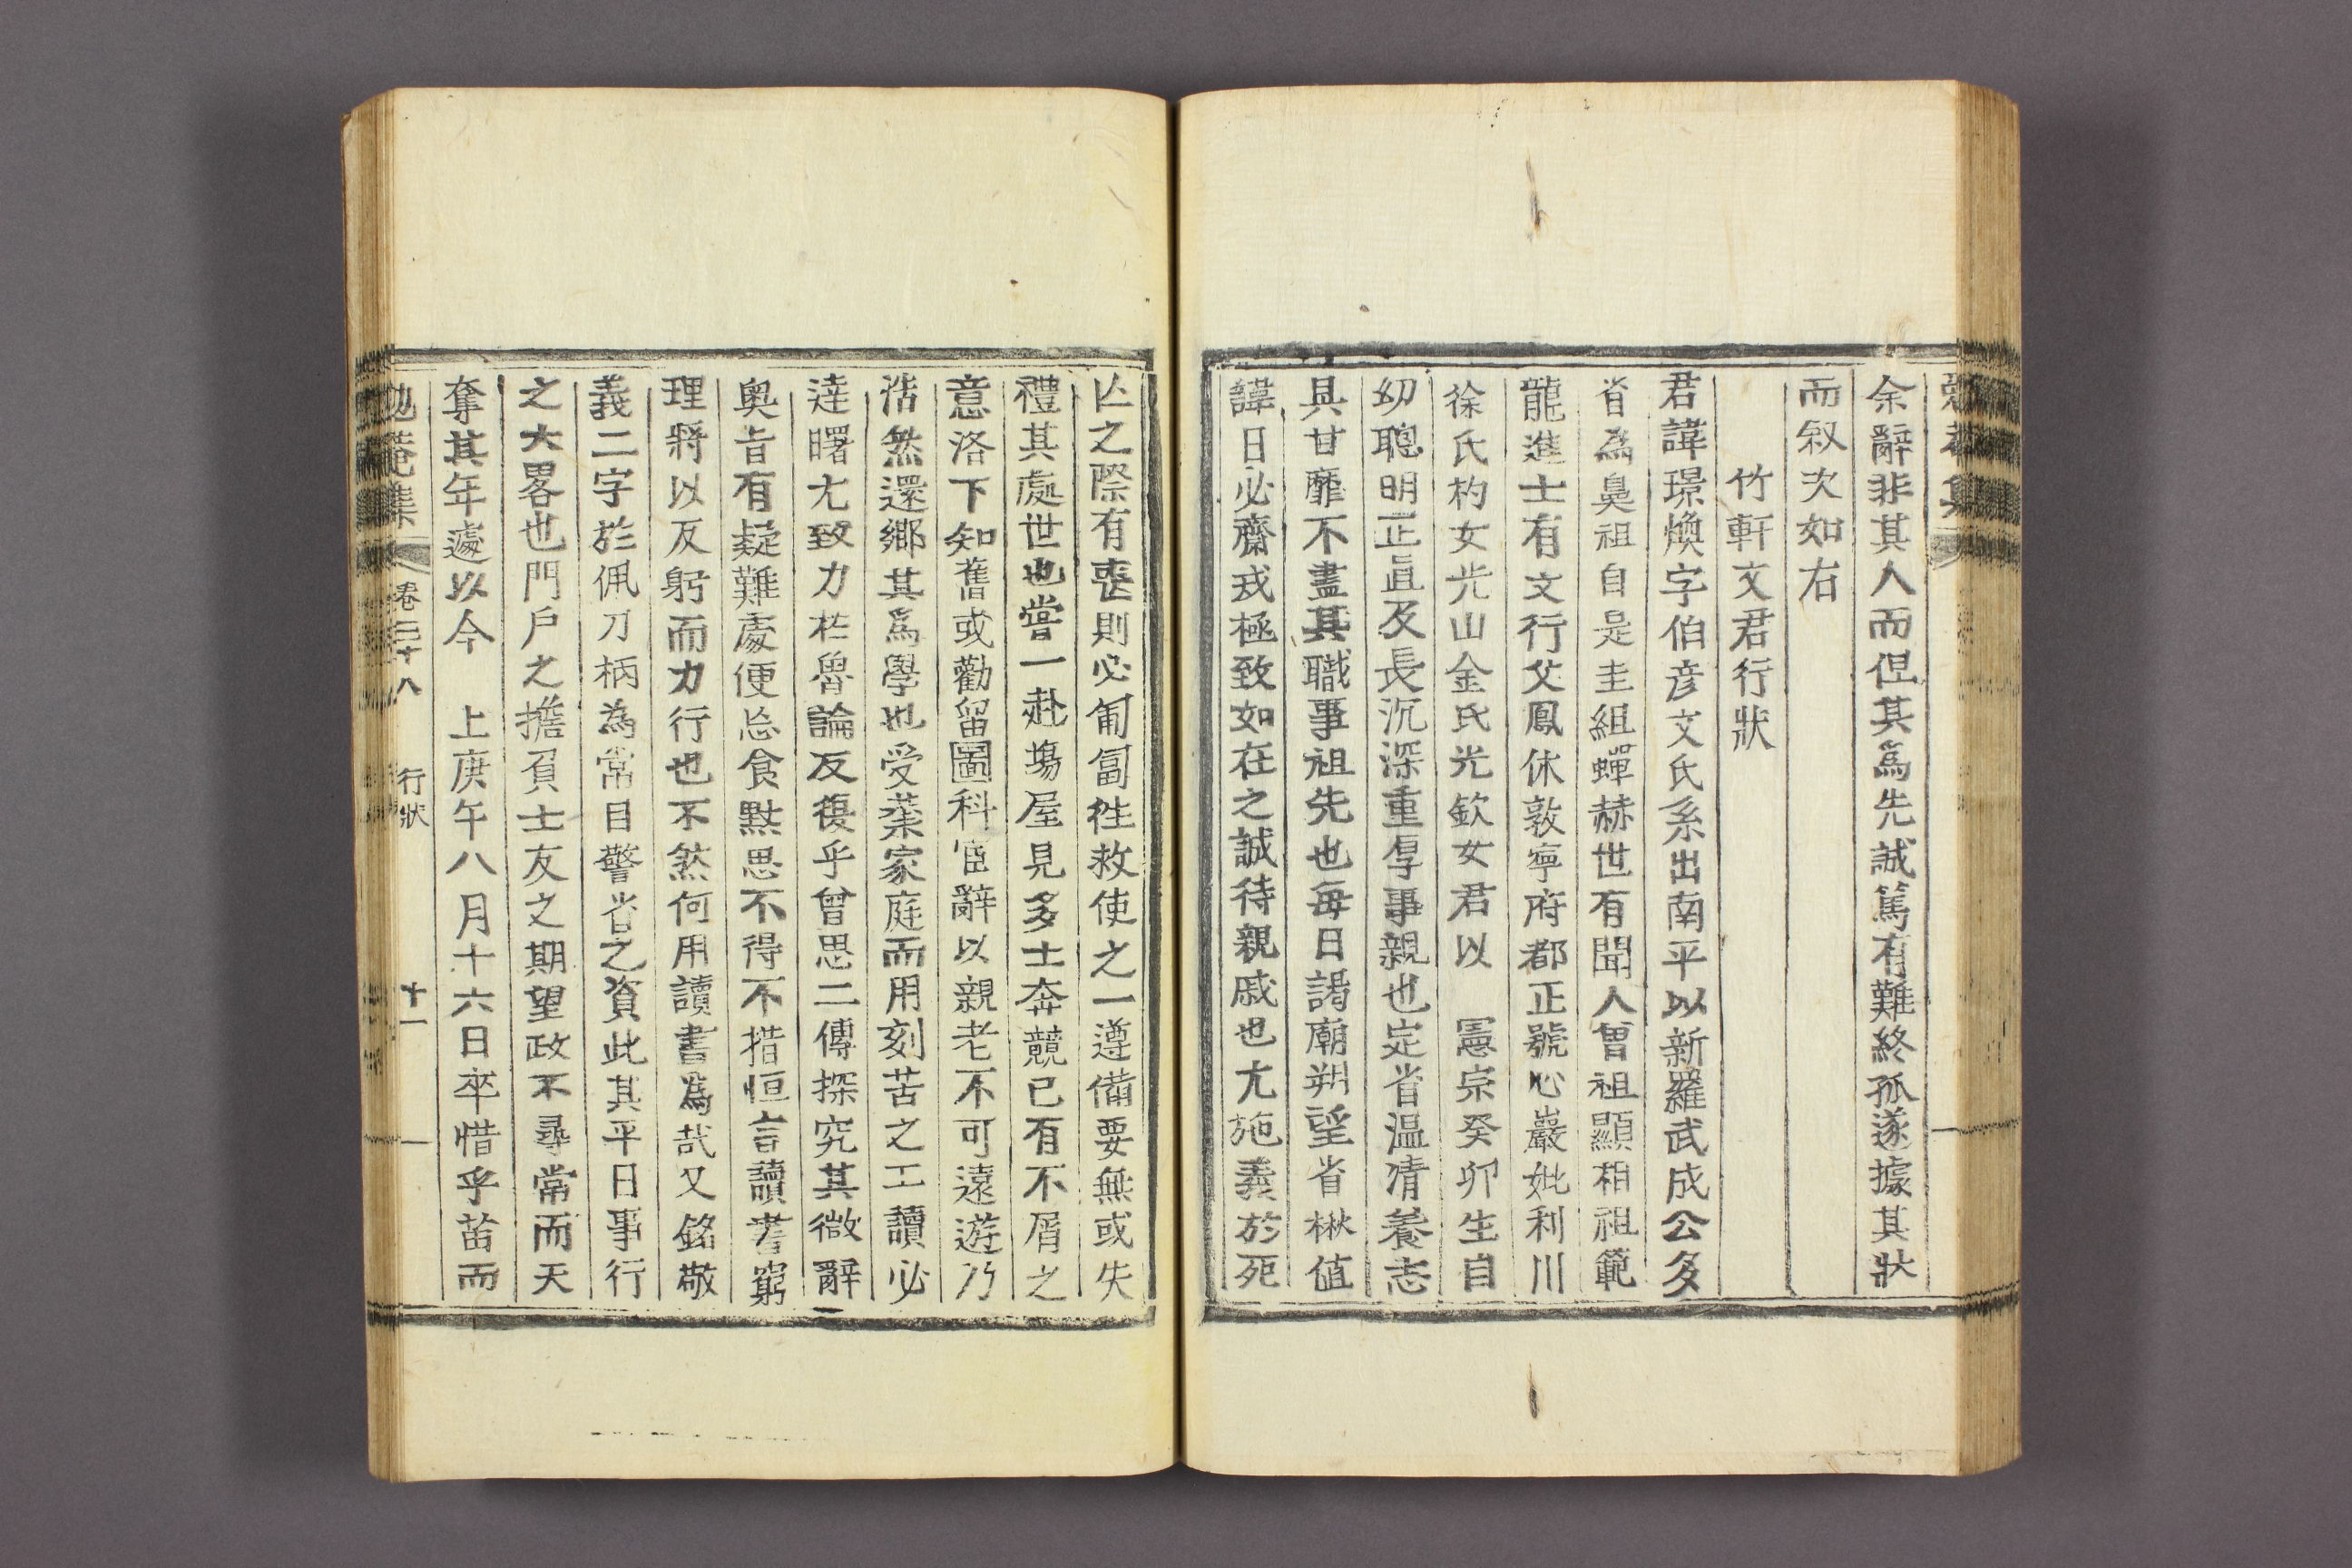 余辭非其人而但其爲先誠篤有難終孤遂據其狀
而叙次如右
竹軒文君行狀
君諱璟煥字伯彦文氏系出南平以新羅武成公多
省為鼻祖自是圭組蟬赫世有聞人曾祖顯相祖範
龍進士有文行父鳳休敦寧府都正號心巖妣利川
徐氏杓女光山金氏光欽女君以 憲宗癸卯生自
幼聰明正直及長沉深重厚事親也定省温凊養志
具甘靡不盡其職事祖先也每日謁廟朔望省楸值
諱日必齋戒極致如在之誠待親戚也尤施義於死
亾之際有喪則必匍匐徃救使之一遵備要無或失
禮其處世也嘗一赴塲屋見多士奔競已有不屑之
意洛下知舊或勸留圖科宦辭以親老不可遠遊乃
浩然還鄉其爲學也受業家庭而用刻苦之工讀必
達曙尤致力於魯論反復乎曾思二傳探究其微辭
奥旨有疑難處便忘食黙思不得不措恒言讀書窮
理將以反躬而力行也不然何用讀書為哉又銘敬
義二字於佩刀柄為常目警省之資此其平日事行
之大畧也門戶之擔負士友之期望政不尋常而天
奪其年遽以今 上庚午八月十六日卒惜乎苗而
勉菴集 卷二十八 行狀 十一